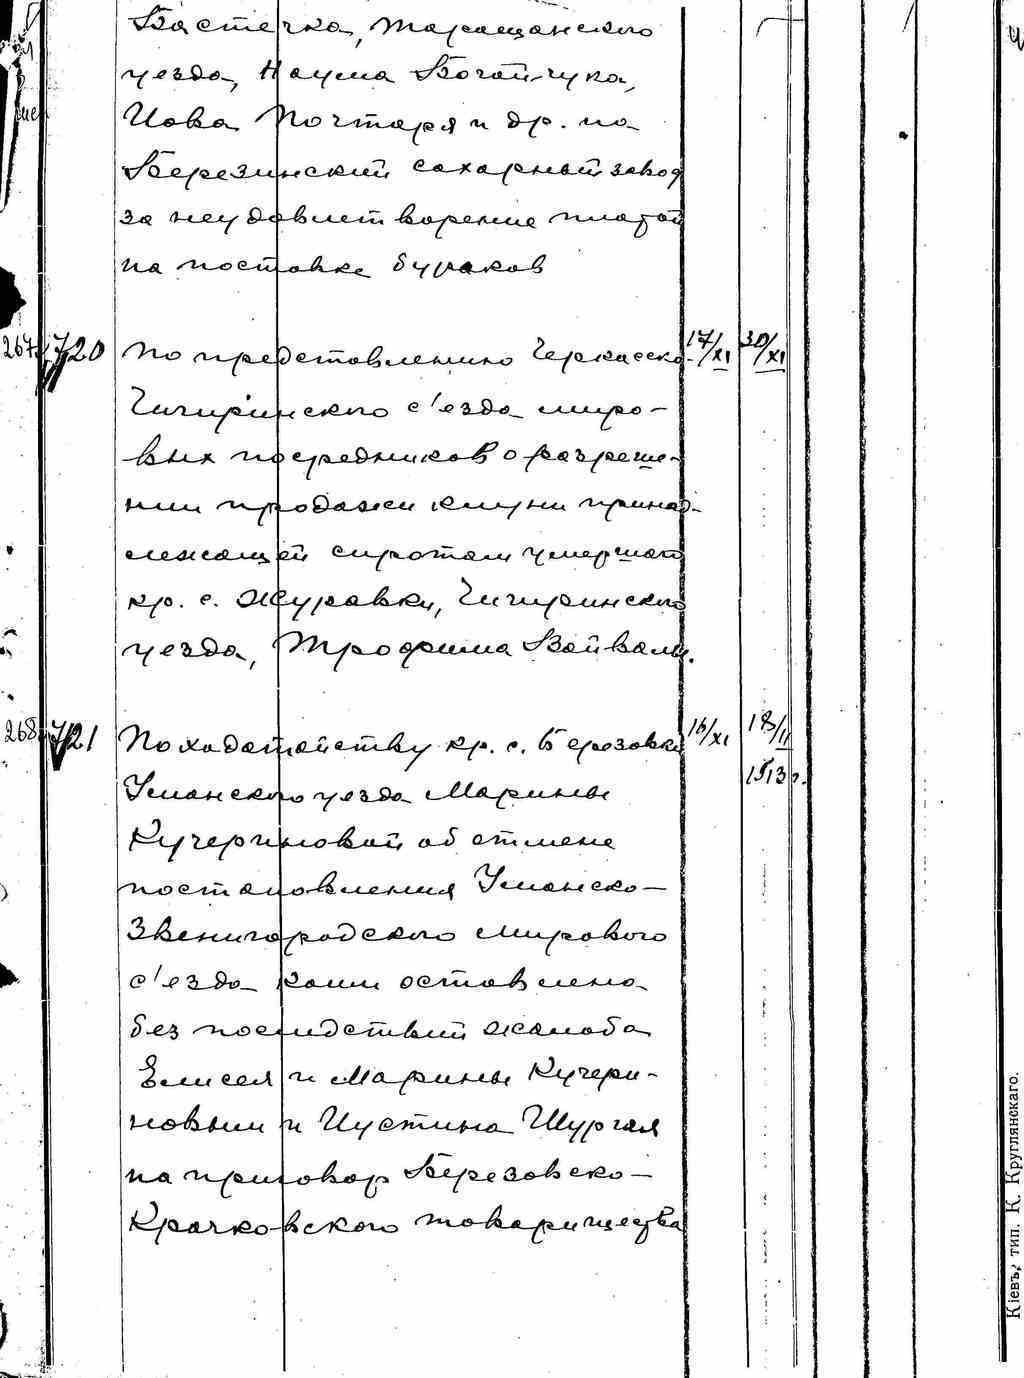 Бастечка, Таращанского
уезда, Наума Богайчука,
Иова Почтаря и др. на
Березинский сахарный завод
за неудовлетворение платой
на поставке бураков
267 720 По представлению Черкасско- 17/XI 30/XI
Чигиринского с'езда миро-
вых посредников о разреше-
нии продажи клуни принад-
лежащей сиротам умершаго
кр. с. Журавки, Чигиринского
уезда, Трофима Вайвалы.
268 721 По ходатайству кр. с. Березовки 16/XI 18/II
Уманского уезда Марины 1913 г.
Кучериновой об отмене
постановления Уманско-
Звенигородского мирового
с'езда коим оставлена
без последствий жалоба
Елисея и Марины Кучери-
новым и Иустина Шургая
на приговор Березовско-
Крачковского товарищества
Кіевъ, тип. К. Круглянскаго.